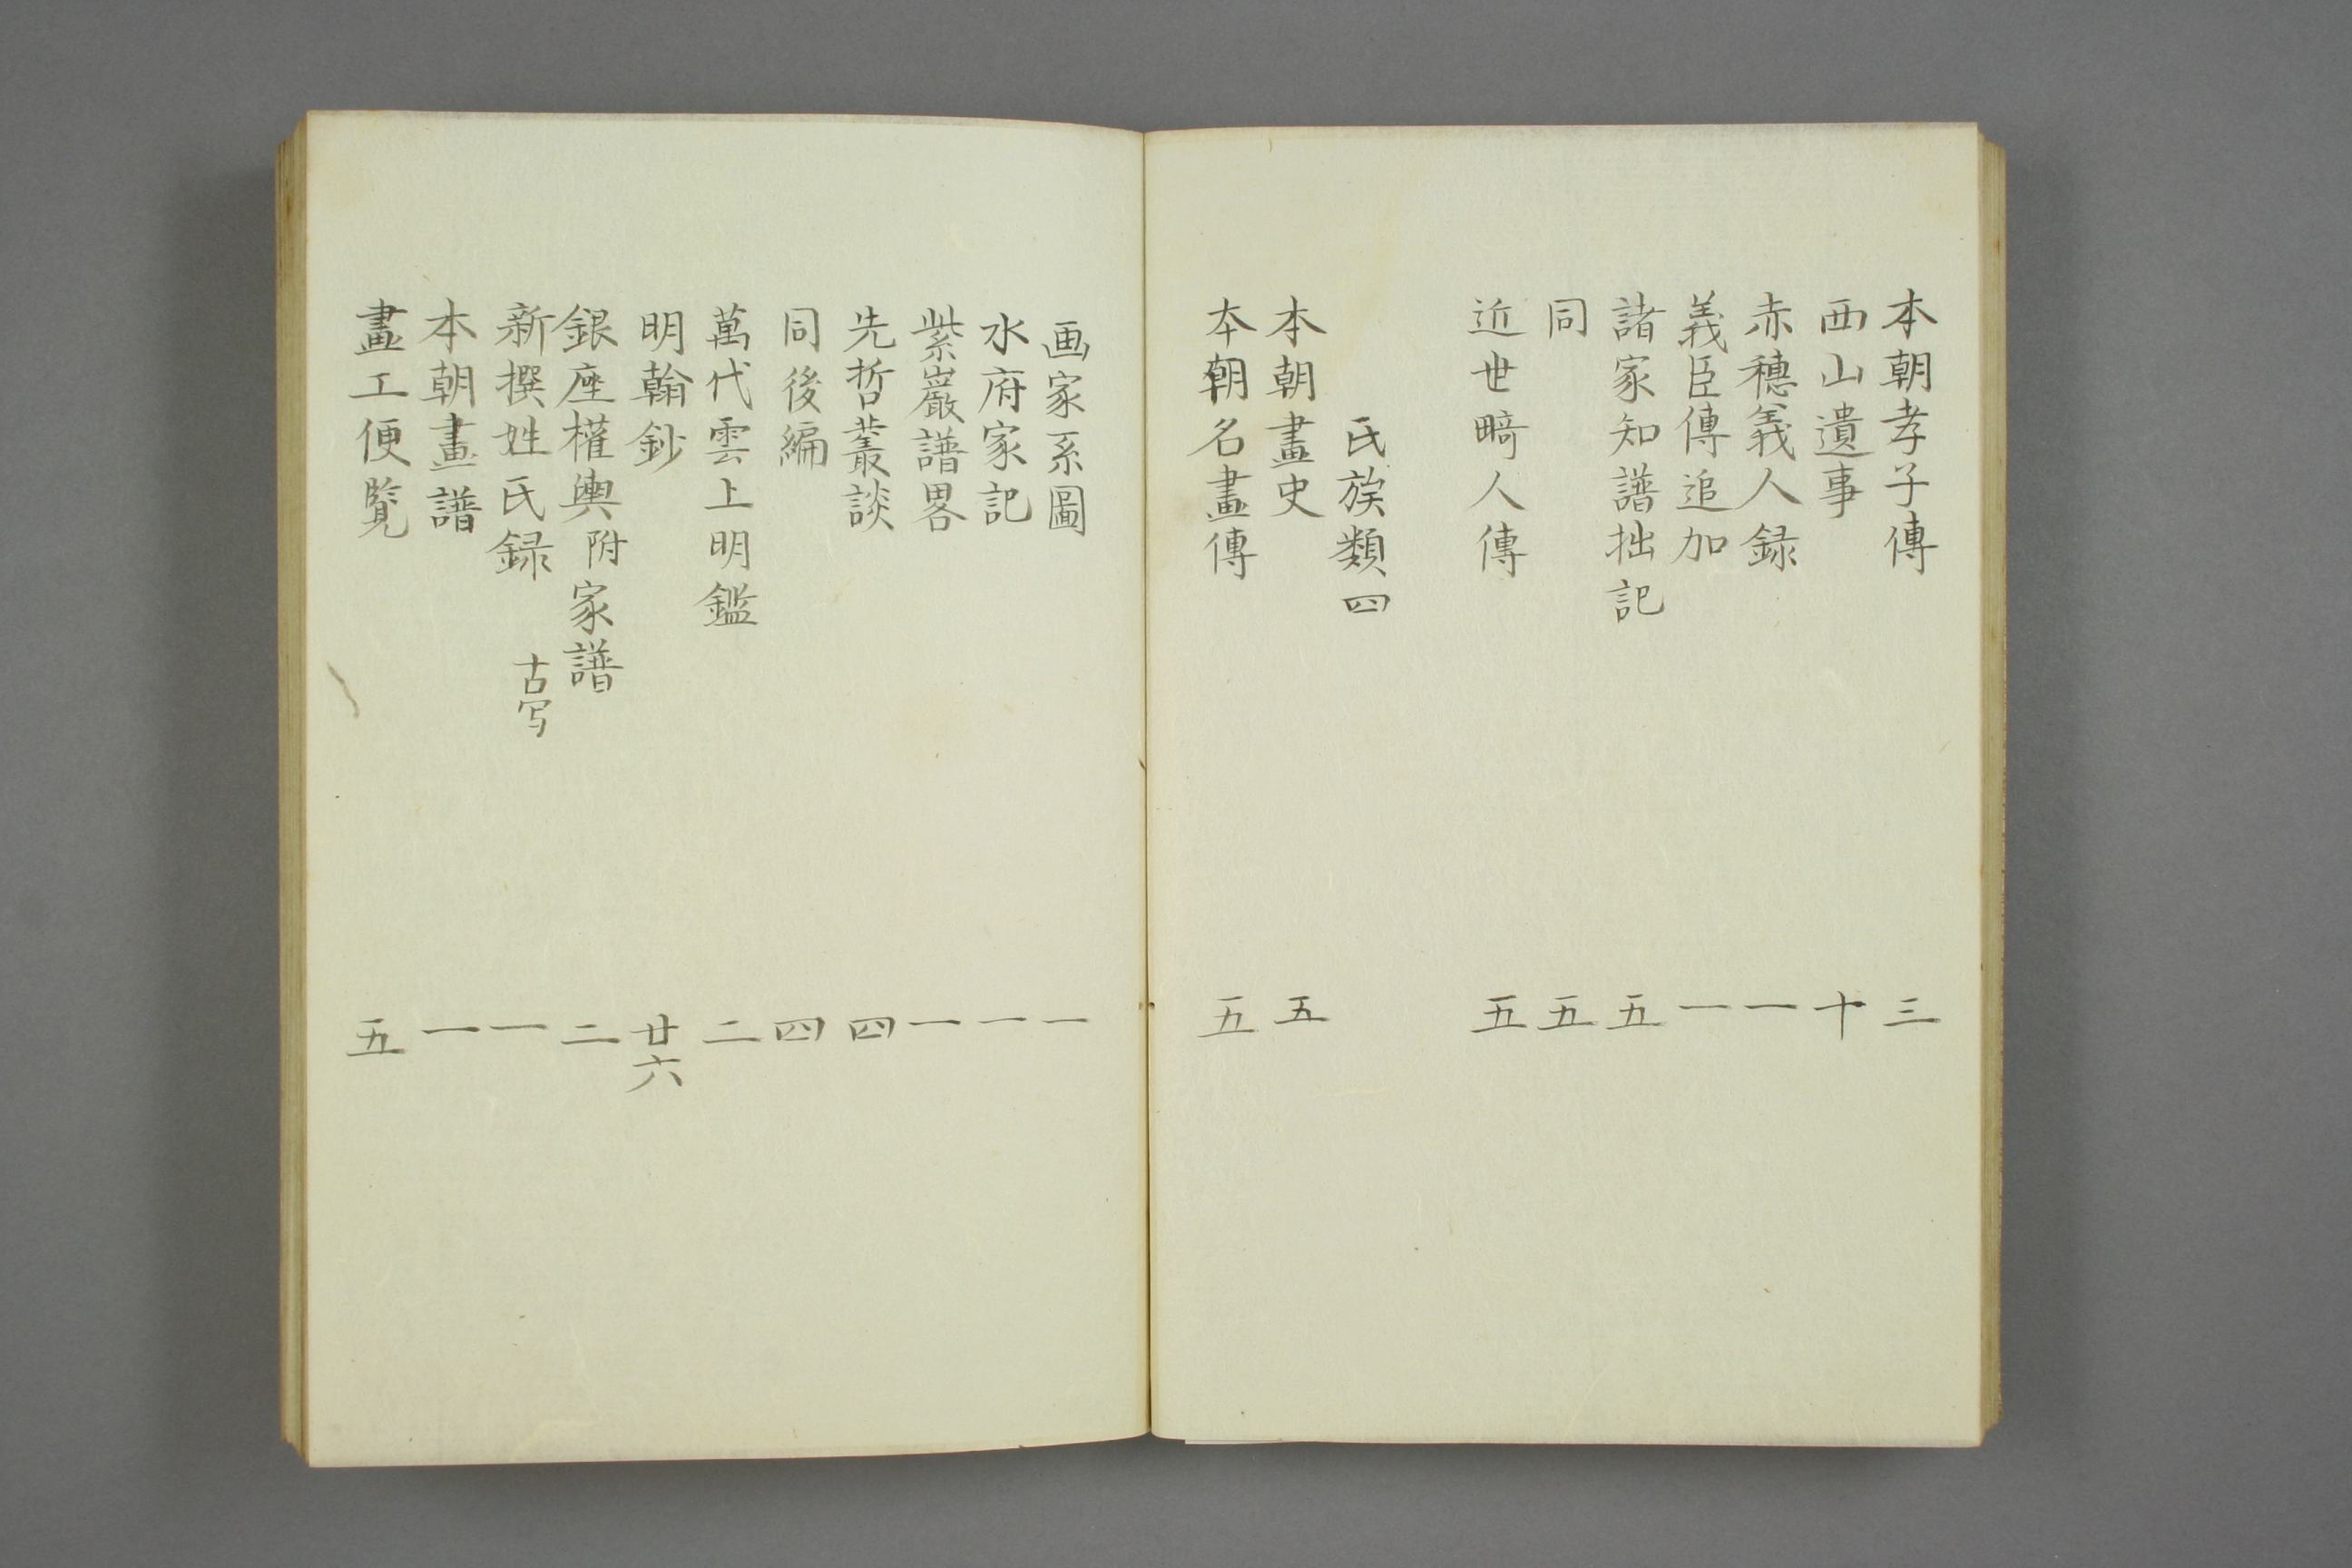 本朝孝子傳 三
西山遺事 十
赤穗義人録 一
義臣傳追加 一
諸家知譜拙記 五
同 五
近世畸人傳 五
氏族類四
本朝畫史 五
本朝名畫傳 五
画家系圖 一
水府家記 一
紫巖譜畧 一
先哲叢談 四
同後編 四
萬代雲上明鑑 二
明翰鈔 廿六
銀座權輿附家譜 二
新撰姓氏録 古写 一
本朝畫譜 一
畫工便覧 五